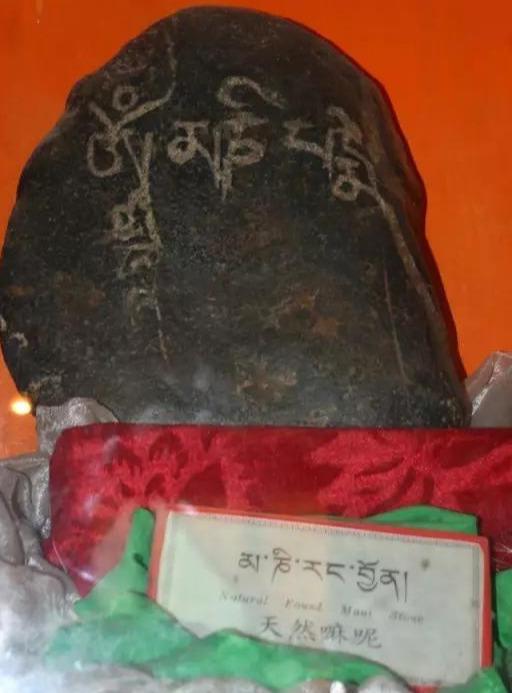 ཨོཾ མཎི
མ་ཎི་རང་བྱོན།
Natural Found Mani Stone
天然嘛呢